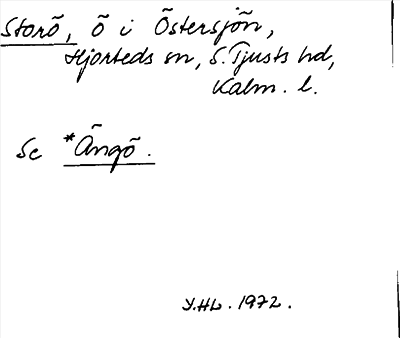 Storö, ö i Östersjön,
Hjorteds sn, S. Tjusts hd,
Kalm. l.
Se *Ängö.
Y.HL. 1972.